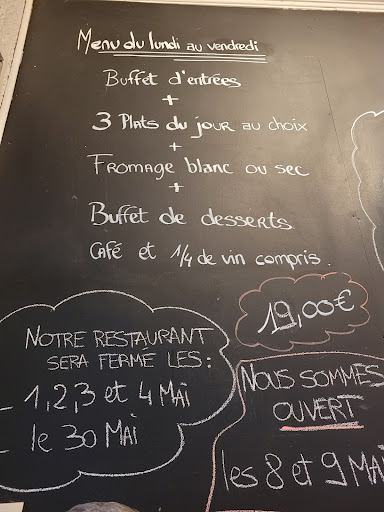 Menu du lundi au vendredi
Buffet d'entrées
+
3 Plats du jour au choix
+
Fromage blanc ou sec
+
Buffet de desserts
Café et 1/4 de vin compris.
19,00€
NOTRE RESTAURANT
SERA FERME LES :
_ 1,2,3 et 4 MAÏ
_ le 30 MAÏ
NOUS SOMMES
OUVERT
les 8 et 9 MAÏ